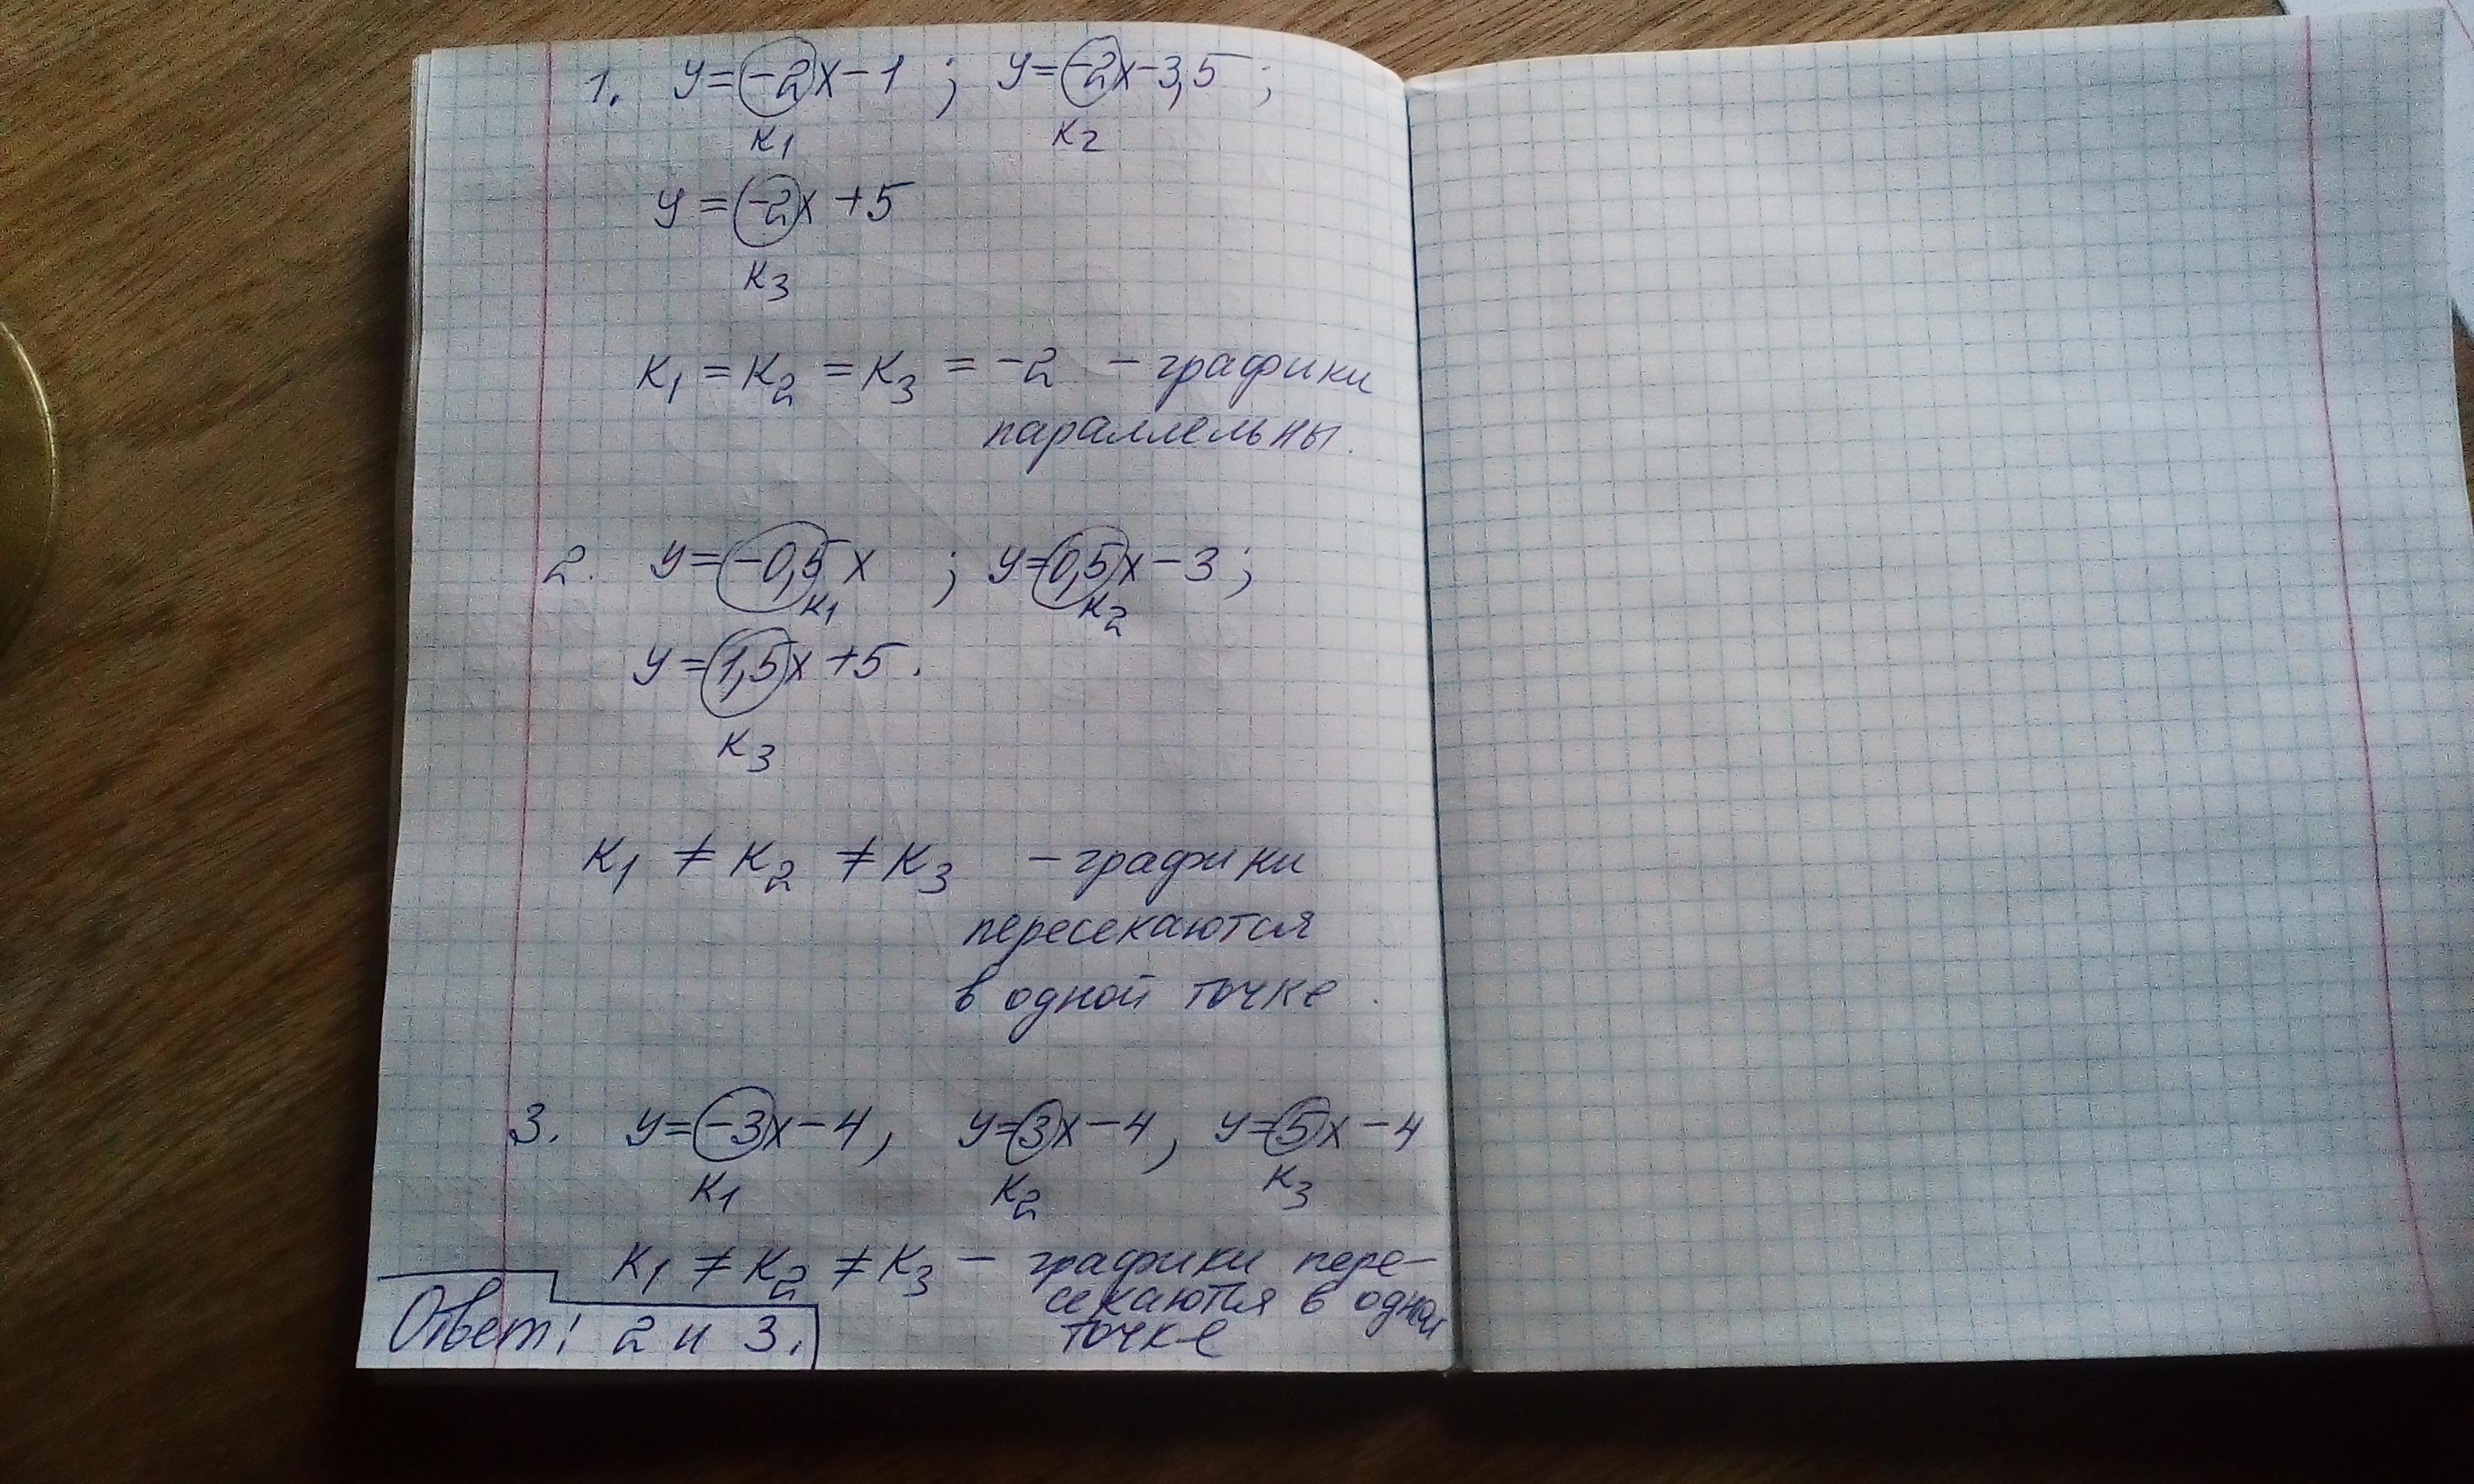 1. y=-2x-1 ; y=-2x-3,5 ;
K1 K2
y=-2x+5
K3
K1 = K2 = K3 = -2 - графики
параллельны.
2. y=-0,5x ; y=0,5x-3 ;
K1 K2
y=1,5x+5.
K3
K1 ≠ K2 ≠ K3 - графики
пересекаются
в одной точке.
3. y=-3x-4, y=3x-4, y=5x-4
K1 K2 K3
K1 ≠ K2 ≠ K3 - графики пере-
секаются в одной
точке
Ответ: 2 и 3.